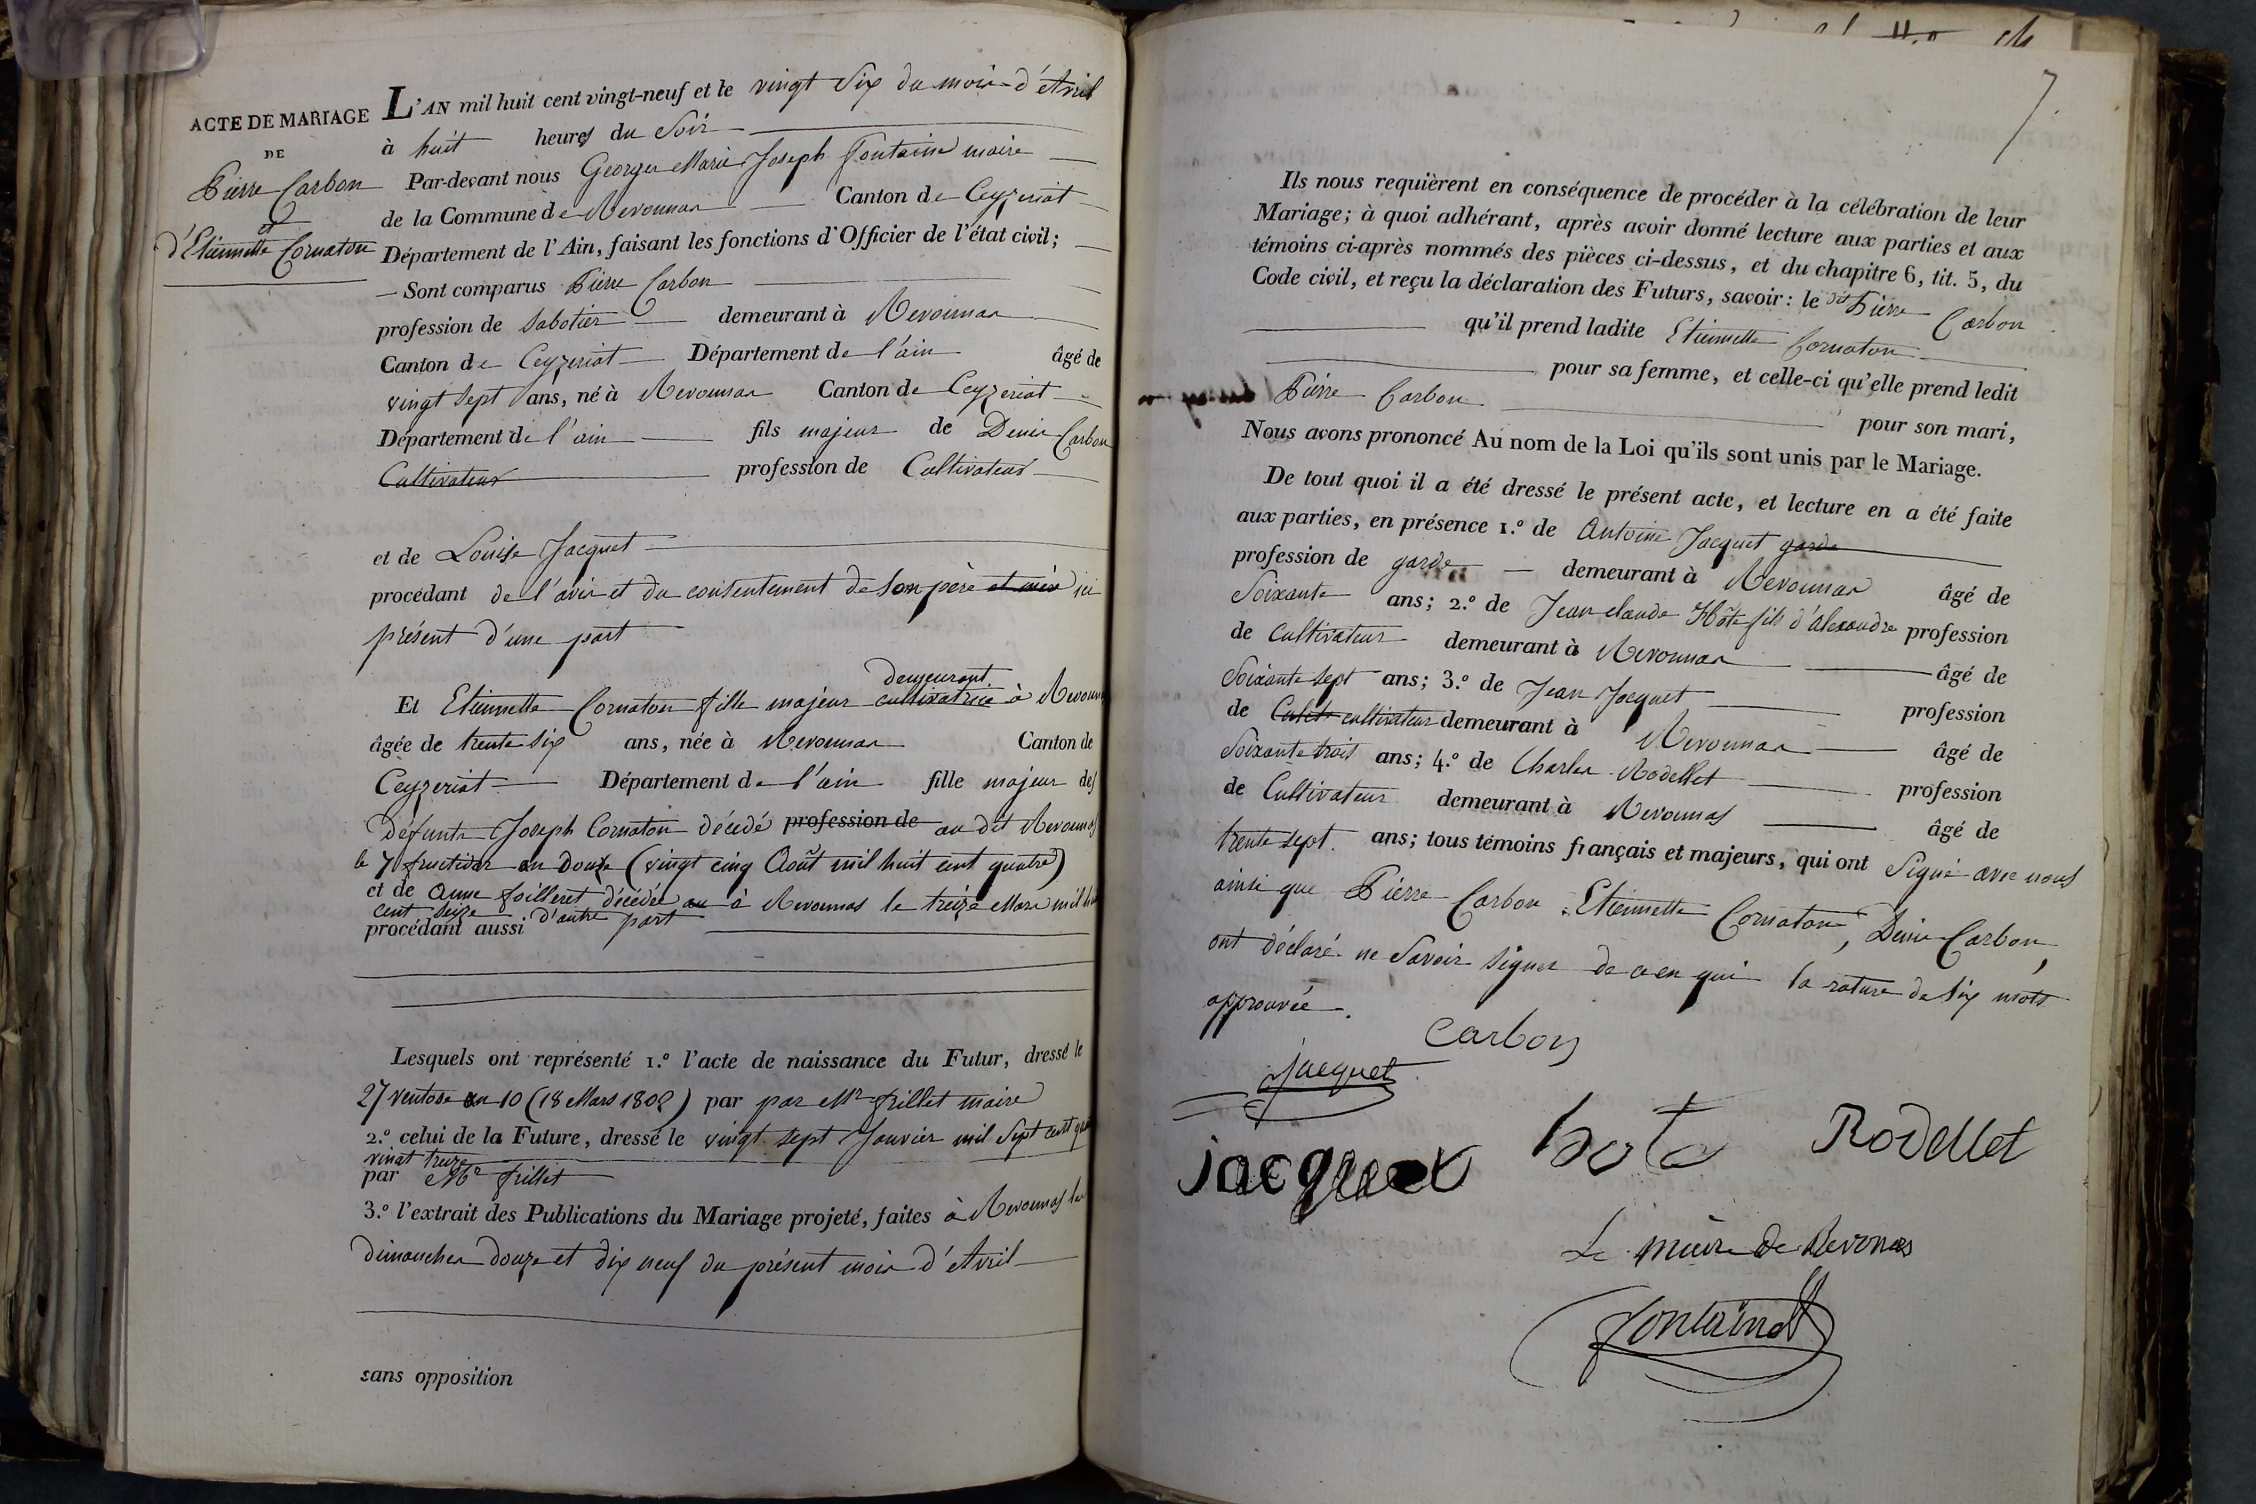 ACTE DE MARIAGE
DE
Pierre Carbon
et
d'Etiennette Cornaton
L'AN mil huit cent vingt-neuf et le vingt Six du mois d'Avril
à huit heures du Soir
Par-devant nous Georges Marie Joseph Fontaine maire
de la Commune de Revonnas Canton de Ceyzeriat
Département de l'Ain, faisant les fonctions d'Officier de l'état civil;
Sont comparus Pierre Carbon
profession de Sabotier demeurant à Revonnas
Canton de Ceyzeriat Département de l'ain âgé de
vingt sept ans, né à Revonnas Canton de Ceyzeriat
Département de l'ain fils majeur de Denis Carbon
Cultivateur profession de Cultivateur
et de Louise Jacquet
procédant de l'avis et du consentement de son père et mère ici
présent d'une part
demeurant
Et Etiennette Cornaton fille majeur cultivatrice à Revonnas
âgée de trente six ans, née à Revonnas Canton de
Ceyzeriat Département de l'ain fille majeur des
défunts Joseph Cornaton décédé profession de au dit Revonnas
le 7 fructidor an Douze (vingt cinq Août mil huit cent quatre)
et de Anne foilleret décédée au à Revonnas le treize Mars mil huit
cent seize
procédant aussi d'autre part
Lesquels ont représenté 1.º l'acte de naissance du Futur, dressé le
27 ventose an 10 (18 Mars 1802) par par Mr frillet maire
2.º celui de la Future, dressé le vingt sept Janvier mil Sept cent quatre
vingt treize
par Mr frillet
3.º l'extrait des Publications du Mariage projeté, faites à Revonnas les
dimanches douze et dix neuf du présent mois d'Avril
sans opposition
7
Ils nous requièrent en conséquence de procéder à la célébration de leur
Mariage; à quoi adhérant, après avoir donné lecture aux parties et aux
témoins ci-après nommés des pièces ci-dessus, et du chapitre 6, tit. 5, du
Code civil, et reçu la déclaration des Futurs, savoir: le dit Pierre Carbon
qu'il prend ladite Etiennette Cornaton
pour sa femme, et celle-ci qu'elle prend ledit
Pierre Carbon
pour son mari,
Nous avons prononcé Au nom de la Loi qu'ils sont unis par le Mariage.
De tout quoi il a été dressé le présent acte, et lecture en a été faite
aux parties, en présence 1.º de Antoine Jacquet garde
profession de garde demeurant à Revonnas âgé de
Soixante ans; 2.º de Jean claude Hôte fils d'alexandre profession
de Cultivateur demeurant à Revonnas âgé de
Soixante sept ans; 3.º de Jean Jacquet profession
de cultivateur demeurant à Revonnas âgé de
Soixante trois ans; 4.º de Charles Rodellet profession
de Cultivateur demeurant à Revonnas âgé de
trente sept. ans; tous témoins français et majeurs, qui ont Signé avec nous
ainsi que Pierre Carbon. Etiennette Cornaton, Denis Carbon,
ont déclaré ne Savoir signer de ce en qui la rature de Six mots
approuvée.
carbon
jacquet
jacquet hote Rodellet
Le maire de Revonas
fontaine